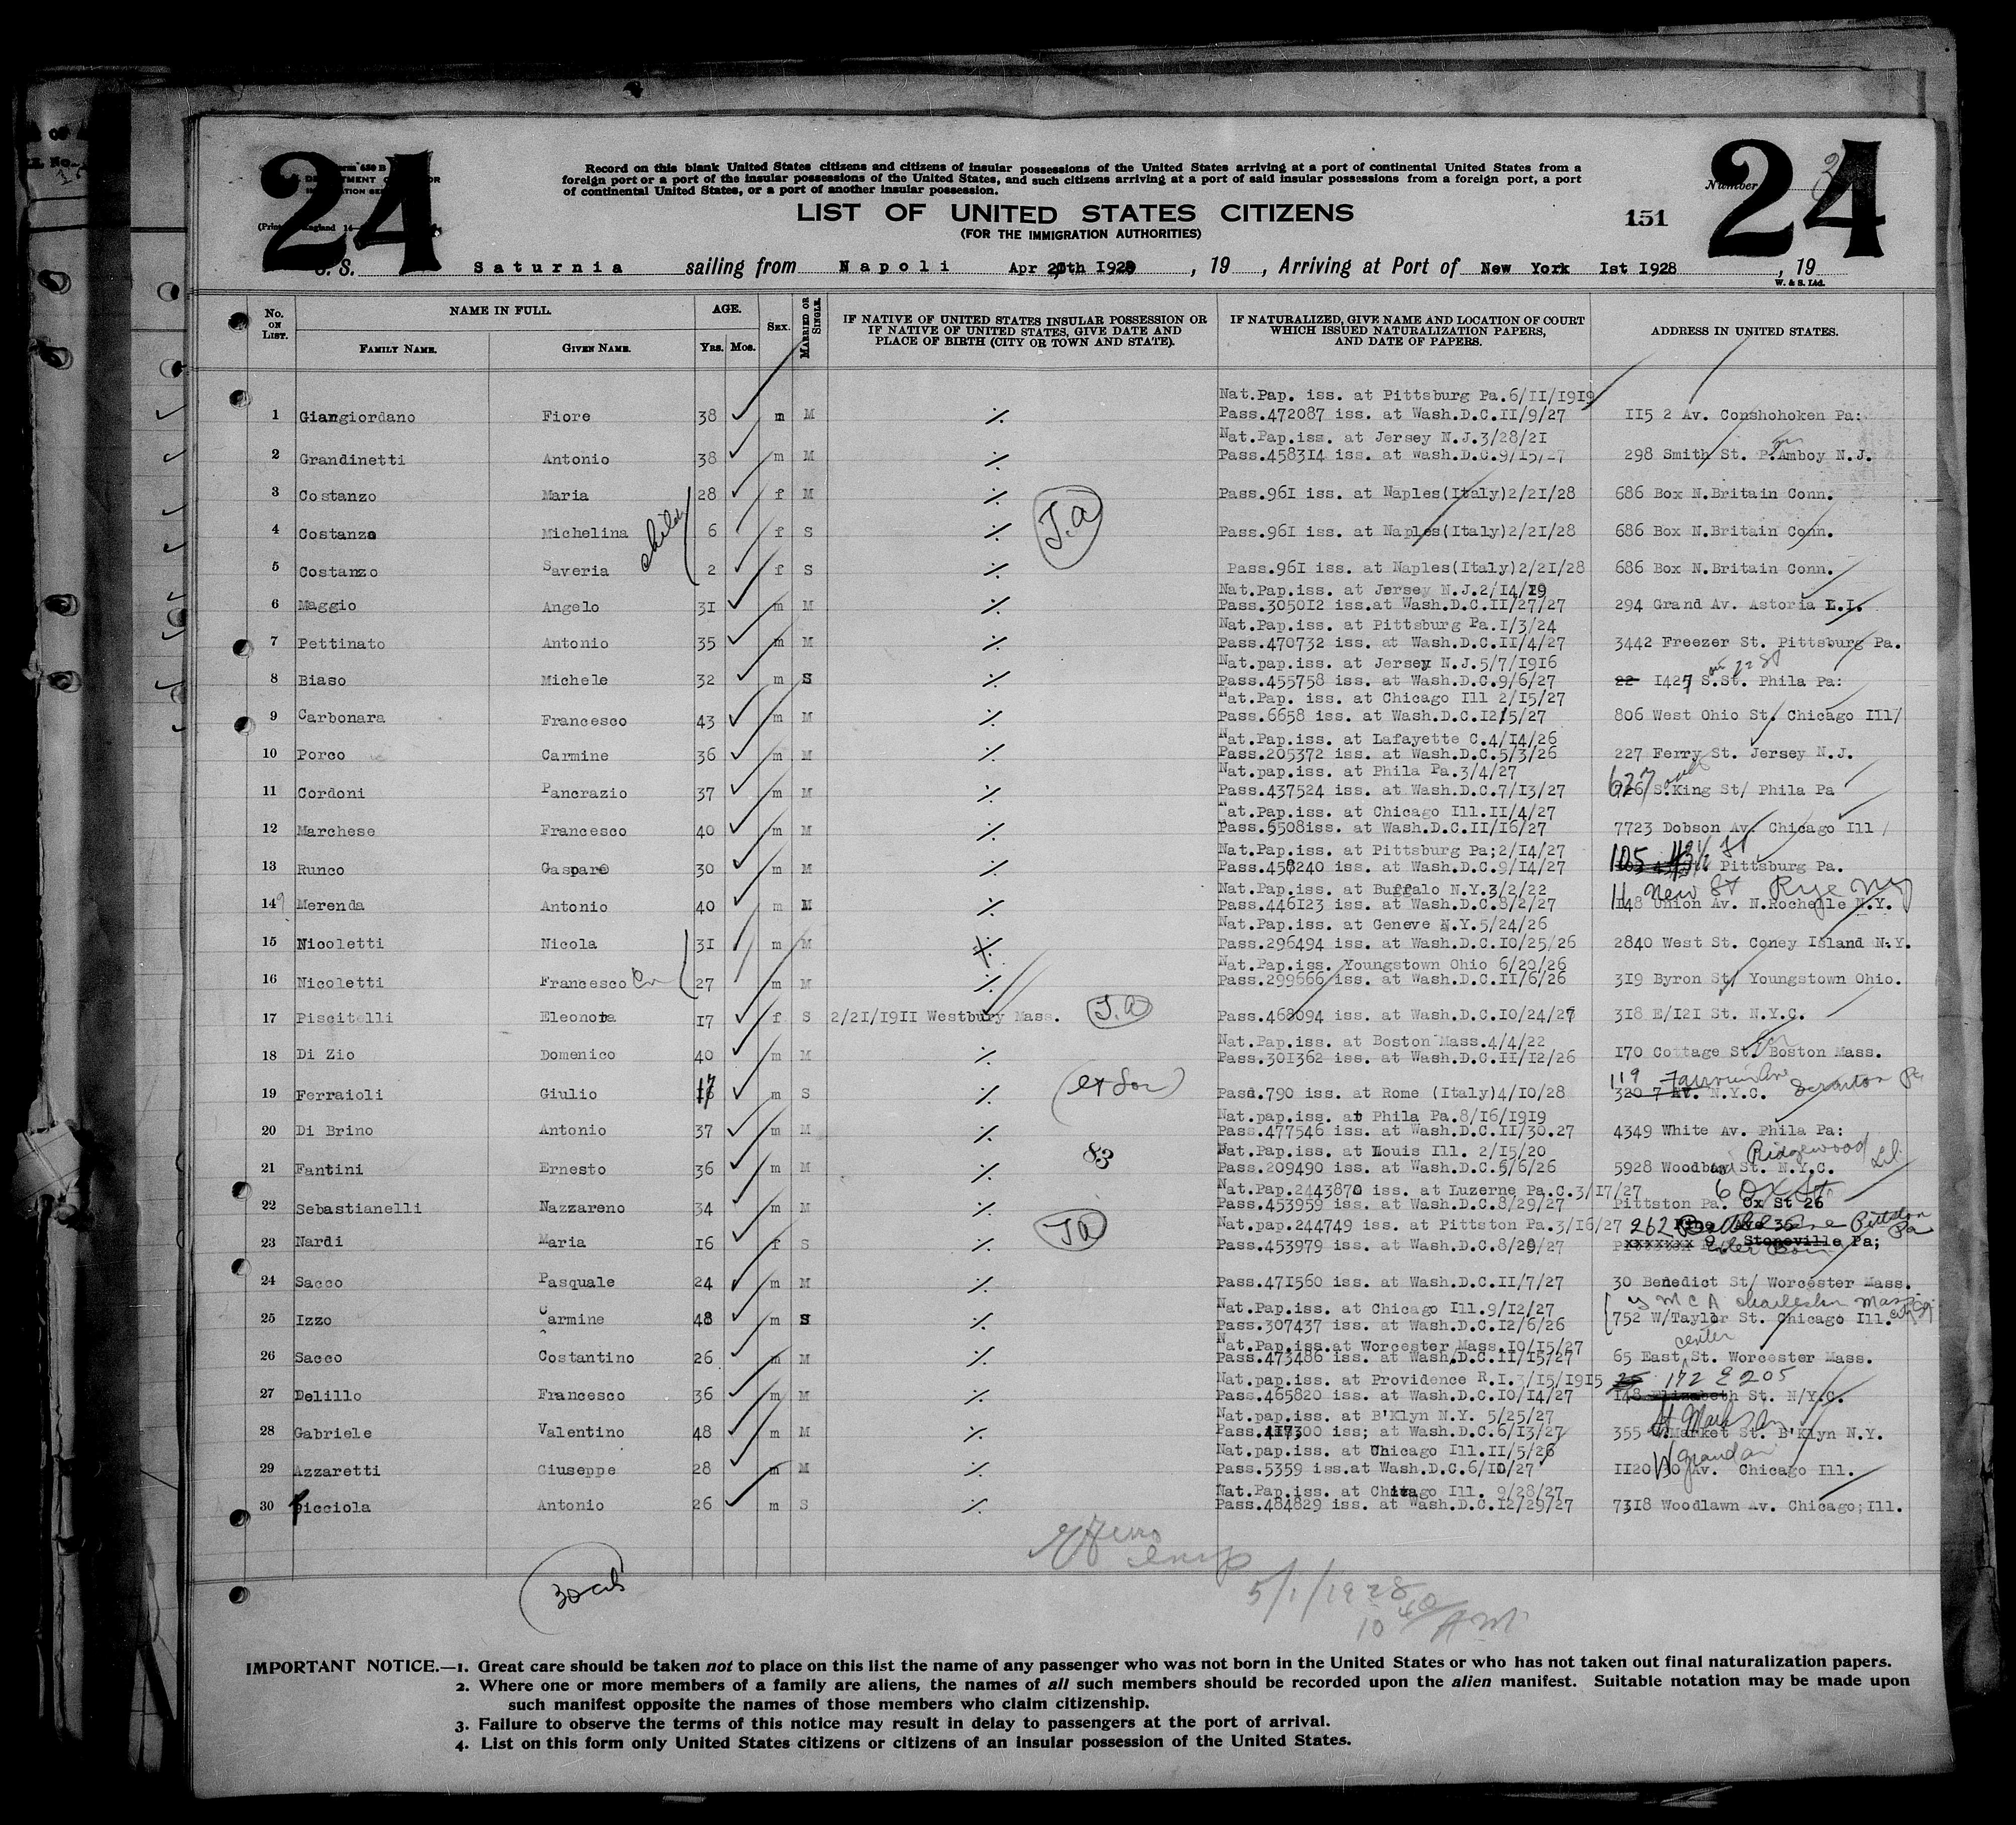 24
24
Record on this blank United States citizens and citizens of insular possessions of the United States arriving at a port of continental United States from a
foreign port or a port of the insular possessions of the United States, and such citizens arriving at a port of said insular possessions from a foreign port, a port
of continental United States, or a port of another insular possession.
Number
LIST OF UNITED STATES CITIZENS
151
(FOR THE IMMIGRATION AUTHORITIES)
S. S. Saturnia sailing from Napoli Apr 20th 1928, 19 , Arriving at Port of New York 1st 1928, 19
W. & S. Ltd.
No. ON LIST. NAME IN FULL. AGE. SEX. MARRIED OR SINGLE. IF NATIVE OF UNITED STATES INSULAR POSSESSION OR IF NATIVE OF UNITED STATES, GIVE DATE AND PLACE OF BIRTH (CITY OR TOWN AND STATE). IF NATURALIZED, GIVE NAME AND LOCATION OF COURT WHICH ISSUED NATURALIZATION PAPERS, AND DATE OF PAPERS. ADDRESS IN UNITED STATES.
FAMILY NAME. GIVEN NAME. Yrs. Mos.
Nat.Pap. iss. at Pittsburg Pa.6/II/1919
1 Giangiordano Fiore 38 m M ./. Pass.472087 iss. at Wash.D.C.II/9/27 II5 2 Av. Conshohoken Pa:
Nat.Pap.iss. at Jersey N.J.3/28/2I
2 Grandinetti Antonio 38 m M ./. Pass.4583I4 iss. at Wash.D.C.9/I5/27 298 Smith St. P.Amboy N.J.
3 Costanzo Maria 28 f M ./. Pass.96I iss. at Naples(Italy)2/2I/28 686 Box N.Britain Conn.
child
J.A
4 Costanzo Michelina 6 f S ./. Pass.96I iss. at Naples(Italy)2/2I/28 686 Box N.Britain Conn.
5 Costanzo Saveria 2 f S ./. Pass.96I iss. at Naples(Italy)2/2I/28 686 Box N.Britain Conn.
Nat.Pap.iss. at Jersey N.J.2/I4/I9
6 Maggio Angelo 3I m M ./. Pass.3050I2 iss.at Wash.D.C.II/27/27 294 Grand Av. Astoria L.I.
Nat.Pap.iss. at Pittsburg Pa.I/3/24
7 Pettinato Antonio 35 m M ./. Pass.470732 iss. at Wash.D.C.II/4/27 3442 Freezer St. Pittsburg Pa.
Nat.pap.iss. at Jersey N.J.5/7/I9I6
8 Biaso Michele 32 m S ./. Pass.455758 iss. at Wash.D.C.9/6/27 22 I427 S.St. Phila Pa:
Nat.Pap. iss. at Chicago Ill 2/I5/27
9 Carbonara Francesco 43 m M ./. Pass.6658 iss. at Wash.D.C.I2/5/27 806 West Ohio St. Chicago Ill/
Nat.Pap.iss. at Lafayette C.4/I4/26
10 Porco Carmine 36 m M ./. Pass.205372 iss. at Wash.D.C.5/3/26 227 Ferry St. Jersey N.J.
Nat.pap.iss. at Phila Pa.3/4/27
11 Cordoni Pancrazio 37 m M ./. Pass.437524 iss. at Wash.D.C.7/I3/27 627 S.King St/ Phila Pa
Nat.Pap.iss. at Chicago Ill.II/4/27
12 Marchese Francesco 40 m M ./. Pass.6508iss. at Wash.D.C.II/I6/27 7723 Dobson Av. Chicago Ill
Nat.Pap.iss. at Pittsburg Pa;2/I4/27
13 Runco Gaspare 30 m M ./. Pass.458240 iss. at Wash.D.C.9/I4/27 105 Pittsburg Pa.
Nat.Pap.iss. at Buffalo N.Y.3/2/22 11 New St Rye NY
14 Merenda Antonio 40 m M ./. Pass.446I23 iss. at Wash.D.C.8/2/27 II48 Union Av. N.Rochelle N.Y.
Nat.Pap.iss. at Geneve N.Y.5/24/26
15 Nicoletti Nicola 3I m M ./. Pass.296494 iss. at Wash.D.C.IO/25/26 2840 West St. Coney Island N.Y.
Nat.Pap.iss. Youngstown Ohio 6/20/26
16 Nicoletti Francesco 27 m M ./. Pass.299666 iss. at Wash.D.C.II/6/26 3I9 Byron St/ Youngstown Ohio.
17 Piscitelli Eleonota I7 f S 2/2I/I9II Westbury Mass. J.A Pass.468094 iss. at Wash.D.C.IO/24/27 3I8 E/I2I St. N.Y.C.
Nat.Pap.iss. at Boston Mass.4/4/22
18 Di Zio Domenico 40 m M ./. Pass.30I362 iss. at Wash.D.C.II/I2/26 I70 Cottage St. Boston Mass.
119 Fairview Ave Scranton Pa
19 Ferraioli Giulio 17 m S ./. Pass.790 iss. at Rome (Italy)4/IO/28 320 7 Av. N.Y.C.
Nat.pap.iss. at Phila Pa.8/I6/I9I9
20 Di Brino Antonio 37 m M ./. Pass.477546 iss. at Wash.D.C.II/30.27 4349 White Av. Phila Pa:
83
Nat.Pap.iss. at Louis Ill. 2/I5/20 Ridgewood L.I.
21 Fantini Ernesto 36 m M ./. Pass.209490 iss. at Wash.D.C.5/6/26 5928 Woodbad St. N.Y.C.
Nat.Pap.2443870 iss. at Luzerne Pa.C.3/I7/27 6 Ox St
22 Sebastianelli Nazzareno 34 m M ./. Pass.453959 iss. at Wash.D.C.8/29/27 Pittston Pa. Ox St 26
JA
Nat.pap.244749 iss. at Pittston Pa.3/I6/27 262 Pittston Pa
23 Nardi Maria I6 f S ./. Pass.453979 iss. at Wash.D.C.8/29/27 xxxxxxx Stoneville Pa;
24 Sacco Pasquale 24 m M ./. Pass.47I560 iss. at Wash.D.C.II/7/27 30 Benedict St/ Worcester Mass.
Nat.Pap.iss. at Chicago Ill.9/I2/27 Y M C A Charleston Mass
25 Izzo Carmine 48 m S ./. Pass.307437 iss. at Wash.D.C.I2/6/26 752 W/Taylor St. Chicago Ill.
Nat.Pap.iss.at Worcester Mass.IO/I5/27 center
26 Sacco Costantino 26 m M ./. Pass.473486 iss. at Wash.D.C.II/I5/27 65 East St. Worcester Mass.
Nat.pap.iss. at Providence R.I.3/I5/I9I5 172 E 205
27 Delillo Francesco 36 m M ./. Pass.465820 iss. at Wash.D.C.IO/I4/27 I48 Elizabeth St. N/Y.C.
Nat.pap.iss. at B'Klyn N.Y. 5/25/27 St Marks Av
28 Gabriele Valentino 48 m M ./. Pass.417300 iss; at Wash.D.C.6/I3/27 355 Market St. B'Klyn N.Y.
Nat.pap.iss. at Chicago Ill.II/5/26 W grand av
29 Azzaretti Giuseppe 28 m M ./. Pass.5359 iss.at Wash.D.C.6/I0/27 II20 Av. Chicago Ill.
Nat.Pap.iss. at Chicago Ill. 9/28/27
30 Picciola Antonio 26 m S ./. Pass.484829 iss. at Wash.D.C.I2/29/27 73I8 Woodlawn Av. Chicago;Ill.
5/1/1928
10 40 AM
IMPORTANT NOTICE.—1. Great care should be taken not to place on this list the name of any passenger who was not born in the United States or who has not taken out final naturalization papers.
2. Where one or more members of a family are aliens, the names of all such members should be recorded upon the alien manifest. Suitable notation may be made upon
such manifest opposite the names of those members who claim citizenship.
3. Failure to observe the terms of this notice may result in delay to passengers at the port of arrival.
4. List on this form only United States citizens or citizens of an insular possession of the United States.